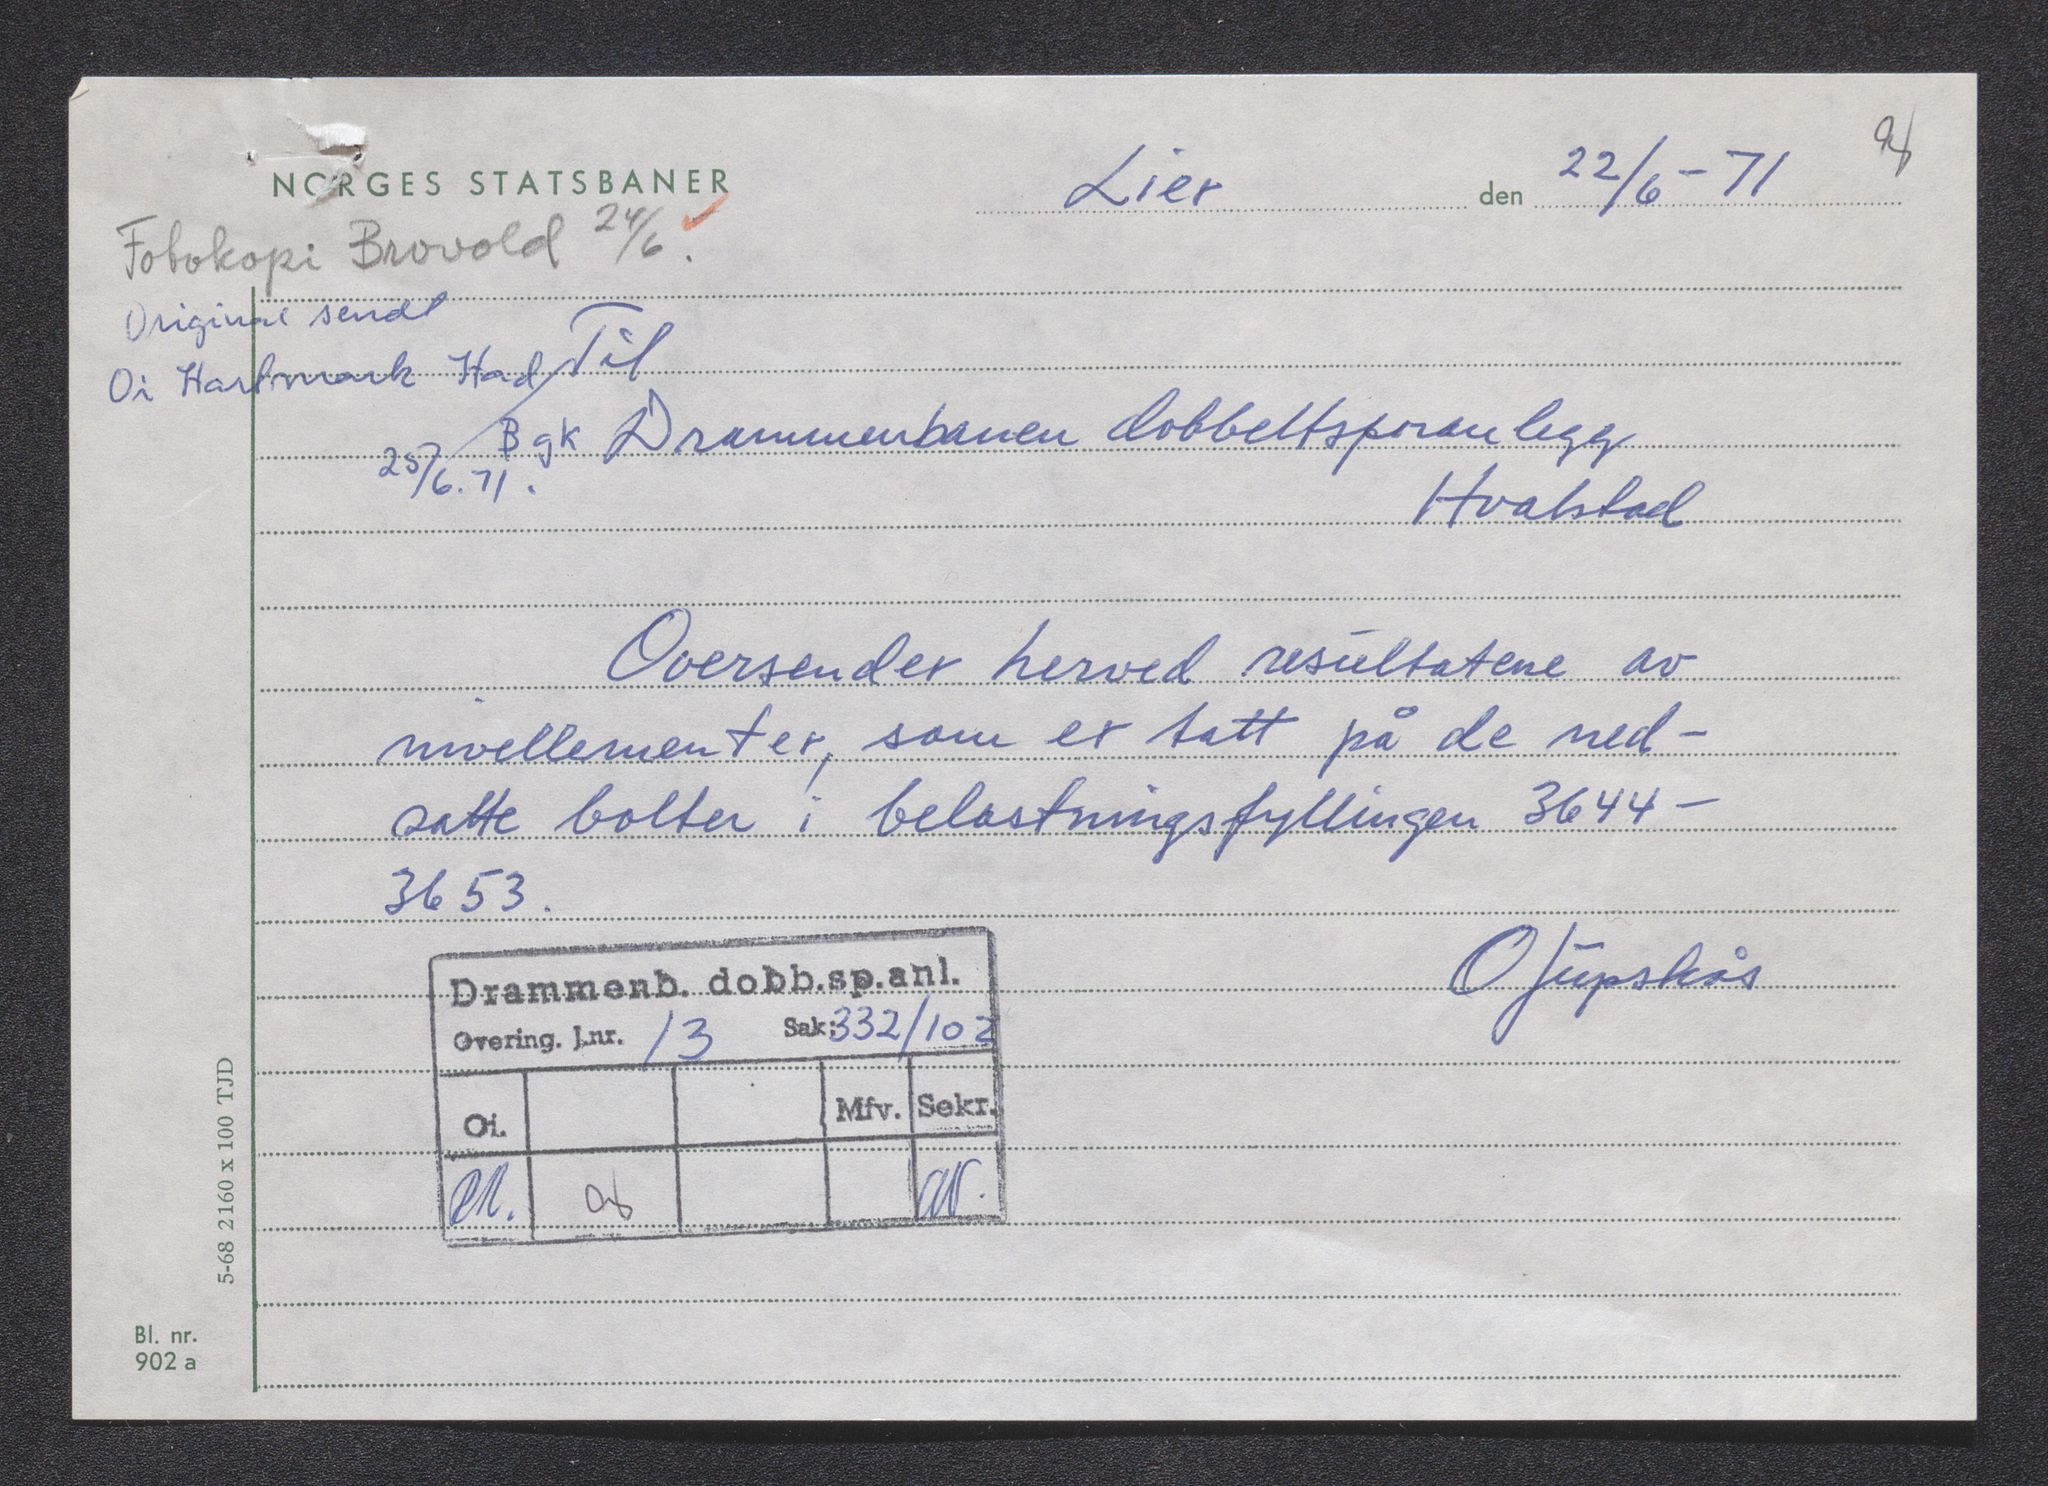 NORGES STATSBANER
Lier den 22/6-71
Fotokopi Brovold 24/6.
Original sendt
Oi Hartmark Had
25/6.71. Bgk
Til
Drammenbanen dobbeltsporanlegg
Hvalstad
Oversender herved resultatene av
nivellementer, som er tatt på de ned-
satte bolter i belastningsfyllingen 3644-
3653.
O Jupskås
Drammenb. dobb.sp.anl.
Overing. J.nr. 13 Sak: 332/102
Oi. Mfv. Sekr.
5-68 2160 x 100 TJD
Bl. nr.
902 a